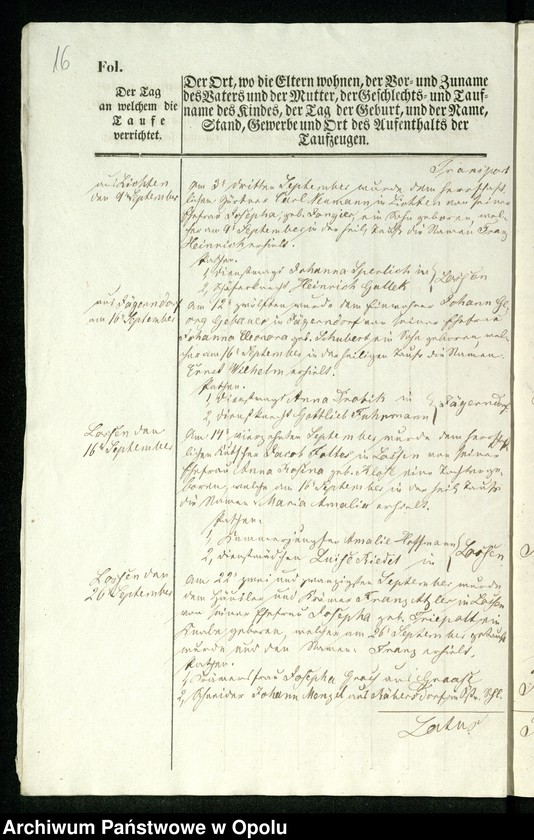 16
Fol.
Der Tag
an welchem die
Taufe
verrichtet.
Der Ort, wo die Eltern wohnen, der Vor- und Zuname
des Vaters und der Mutter, der Geschlechts- und Tauf-
name des Kindes, der Tag der Geburt, und der Name,
Stand, Gewerbe und Ort des Aufenthalts der
Taufzeugen.
Transport
den 9t September
Am 3t dritten September wurde dem herrschaft
lichen Gärtner Carl Neumann in von seiner
Ehefrau Josepha, geb. ein Sohn geboren, wel-
cher am 9t September in der heil. Taufe die Namen Franz
Heinrich erhielt.
Pathen.
1, Dienstmagd Johanna Sperlich in
2, Schäferknecht, Heinrich Gallek
Lossen
aus Jägerndorf
am 16t September
Am 12t zwölften wurde dem Einwohner Johann Ge
org Gebauer in Jägerndorf von seiner Ehefrau
Johanna Eleonora geb. Schubert, ein Sohn geboren, wel-
cher am 16t September in der heiligen Taufe die Namen:
Ernst Wilhelm erhielt.
Pathen.
1, Dienstmagd Anna in
2, Dienstknecht Gottlieb Fuhrmann
Jägerndorf
Lossen den
16t September
Am 14t vierzehnten September wurde dem herrschft
lichen Kutscher Jacob in Lossen von seiner
Ehefrau Anna Rosina geb. eine Tochter ge-
boren, welche am 16t September in der heil. Taufe
die Namen: Maria Amalia erhielt.
Pathen.
1, Kammerjungfer Amalie Hoffmann
2, Dienstmädchen Luise Riedel in
Lossen
Lossen den
26 September
Am 22t zwei und zwanzigsten September wurde
dem Häusler und Krämer Franz in Lossen
von seiner Ehefrau Josepha geb. ein
Knabe geboren, welcher am 26t September getauft
wurde und den Namen: Franz erhielt.
Pathen.
1, Krämersfrau Josepha aus Graase
2, Schneider Johann Menzel aus
Latus
Archiwum Państwowe w Opolu